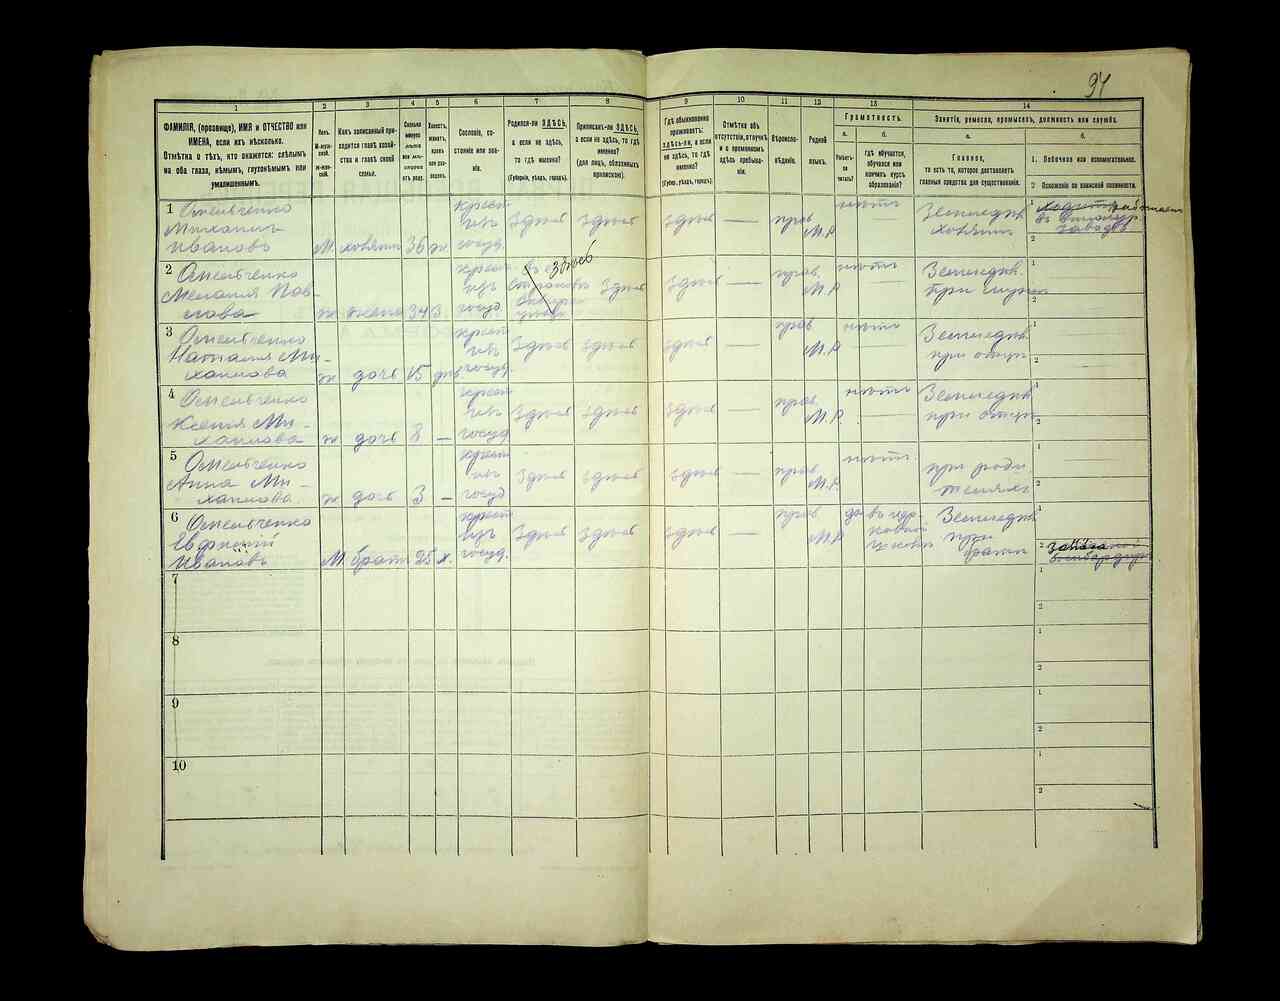 94
1 2 3 4 5 6 7 8 9 10 11 12 13 14
ФАМИЛІЯ, (прозвище), ИМЯ и ОТЧЕСТВО или
ИМЕНА, если ихъ нѣсколько.
Отмѣтка о тѣхъ, кто окажется: слѣпымъ
на оба глаза, нѣмымъ, глухонѣмымъ или
умалишеннымъ.
Полъ.
М-мужской.
Ж-женскій.
Какъ записанный приходится главѣ хозяйства и главѣ своей
семьи.
Сколько
минуло
лѣтъ
Холостъ,
женатъ,
вдовъ
Сословіе, состояніе или званіе.
Родился-ли ЗДѢСЬ,
а если не здѣсь,
то гдѣ именно?
(Губернія, уѣздъ, городъ).
Приписанъ-ли ЗДѢСЬ,
а если не здѣсь, то гдѣ
именно?
(для лицъ, обязанныхъ
припискою).
Гдѣ обыкновенно
проживаетъ:
ЗДѢСЬ-ли, а если
не здѣсь, то гдѣ
именно?
(Губер., уѣздъ, городъ).
Отмѣтка объ
отсутствіи, отлучкѣ
и о временномъ
здѣсь пребываніи.
Вѣроисповѣданіе.
Родной
языкъ.
Грамотность.
а. б.
Умѣетъ-ли
читать?
гдѣ обучается,
обучался или
кончилъ курсъ
образованія?
Занятіе, ремесло, промыселъ, должность или служба.
а. б.
Главное,
то есть то, которое доставляетъ
главныя средства для существованія.
1. Побочное или вспомогательное.
2. Положеніе по воинской повинности.
1 Омельченко
Михаилъ
Ивановъ М. хозяинъ 36 ж крест изъ госуд. здѣсь здѣсь здѣсь — прав М.Р нѣтъ — Земледѣл. хозяинъ
2 Омельченко
Меланія Пав-
лова ж жена 34 з крест изъ госуд здѣсь здѣсь здѣсь — прав. М.Р нѣтъ — Земледѣл. при
3 Омельченко
Наталія Ми-
хаилова ж дочь 15 дѣв крест изъ госуд. здѣсь здѣсь здѣсь прав М.Р нѣтъ — Земледѣл. при отцѣ
4 Омельченко
Ксенія Ми-
хаилова ж дочь 8 — крест изъ госуд здѣсь здѣсь здѣсь — прав М.Р. нѣтъ — Земледѣл. при отцѣ
5 Омельченко
Анна Ми-
хаилова ж дочь 3 — крест изъ госуд здѣсь здѣсь здѣсь — прав М.Р. нѣтъ. при роди
телях
6 Омельченко
Евфимій
Ивановъ М. братъ 25 х. крест изъ госуд. здѣсь здѣсь здѣсь — прав М.Р да Земледѣл при братѣ
7
8
9
10